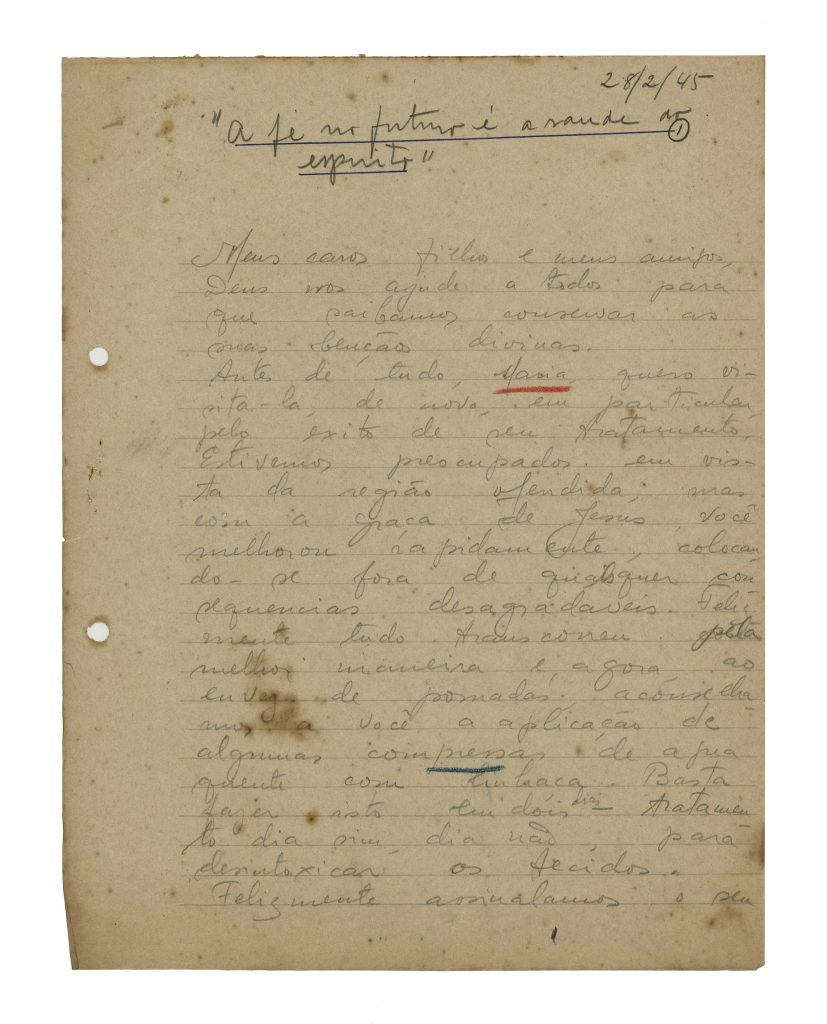 28/2/45
"A fé no futuro é a saude do
1
espirito"
Meus caros filhos e meus amigos,
Deus nos ajude a todos para
que saibamos conservar as
suas benções divinas.
Antes de tudo, Maria, quero vi-
sita-la, de novo, em particular,
pelo êxito de seu tratamento.
Estivemos preocupados. em vis-
ta da região ofendida, mas
com a graça de Jesús, você
melhorou rapidamente, colocan
do-se fora de quaisquer con
sequencias desagradaveis. Feliz
mente tudo transcorreu pela
melhor maneira e, agora, ao
envez de pomadas, aconselha
mos a você a aplicação de
algumas compressas de agua
quente com linhaça. Basta
fazer isto em dois dias - tratamen
to dia sim, dia não, para
desintoxicar os tecidos.
Felizmente assinalamos o seu
1